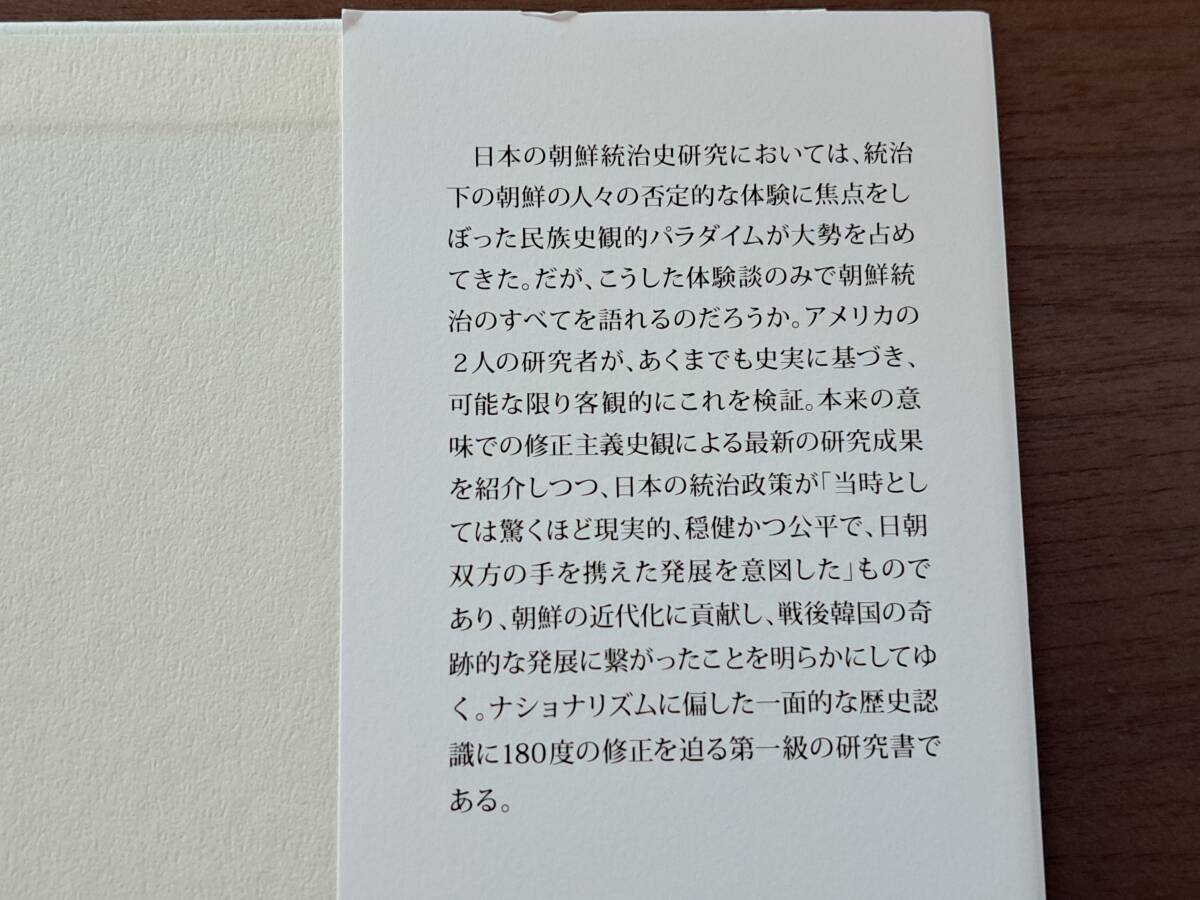 日本の朝鮮統治史研究においては、統治
下の朝鮮の人々の否定的な体験に焦点をし
ぼった民族史観的パラダイムが大勢を占め
てきた。だが、こうした体験談のみで朝鮮統
治のすべてを語れるのだろうか。アメリカの
２人の研究者が、あくまでも史実に基づき、
可能な限り客観的にこれを検証。本来の意
味での修正主義史観による最新の研究成果
を紹介しつつ、日本の統治政策が「当時とし
ては驚くほど現実的、穏健かつ公平で、日朝
双方の手を携えた発展を意図した」もので
あり、朝鮮の近代化に貢献し、戦後韓国の奇
跡的な発展に繋がったことを明らかにしてゆ
く。ナショナリズムに偏した一面的な歴史認
識に180度の修正を迫る第一級の研究書で
ある。